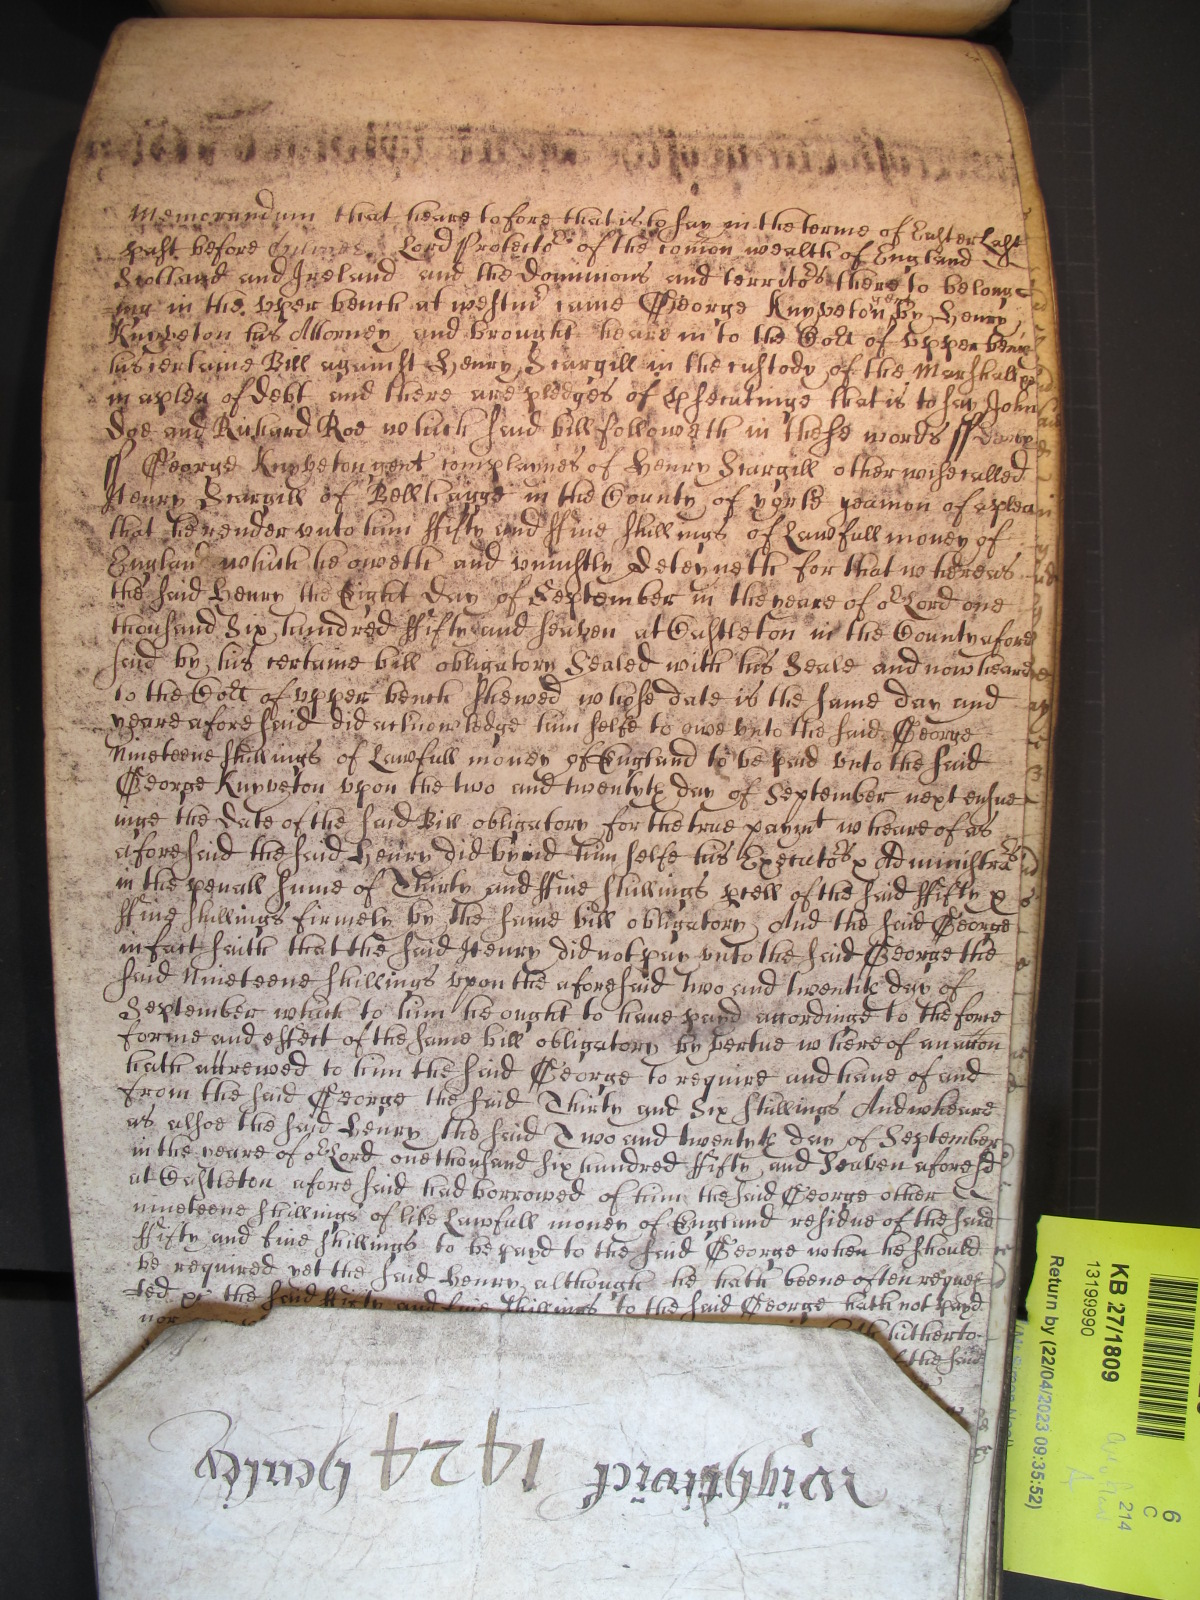 Memorandum that heare tofore that is to say in the terme of Easter Last
past before Lord Protector of the comon wealth of England
Scotland and Ireland and the dominions and territors there to belong
ing in the vper bench at westm came George Knyveton gen by Henry
Knyveton his Attorney and brought heare in to the Cort of vpper bench
his certaine Bill against Henry Scargill in the custody of the Marshall
in a plea of debt and there are pledges of psecutinge that is to say John
Doe and Richard Roe which said bill followeth in these words ss
ss George Knyveton gent complaines of Henry Scargill otherwise called
Henry Scargill of Bellhagge in the County of yorke yeamon of a plea
that he render vnto him ffifty and ffive shillings of Lawfull money of
England which he oweth and vniustly deteyneth for that whereas
the said Henry the Eight day of September in the yeare of or Lord one
thousand Six hundred ffifty and seaven at Castleton in the County afore
said by his certaine bill obligatory Sealed with his Seale and now heare
to the Cort of vpper bench shewed whose date is the same day and
yeare aforesaid did acknowledge him selfe to owe vnto the said George
Nineteene shillings of Lawfull money of England to be paid vnto the said
George Knyveton vpon the two and twentyth day of September next ensue
inge the date of the said Bill obligatory for the true paymt wheareof as
aforesaid the said Henry did bynd him selfe his Executors & Administrars
in the penall sume of Thirty and ffive shillings pcell of the said ffifty &
ffive shillings firmely by the same bill obligatory And the said George
in fact saith that the said Henry did not pay vnto the said George the
said Nineteene shillings vpon the aforesaid two and twentith day of
September which to him he ought to have payd accordinge to the forme
forme and effect of the same bill obligatory by vertue whereof an accon
hath accrewed to him the said George to require and have of and
from the said George the said Thirty and Six shillings And wheare
as alsoe the said Henry the said Two and twentyth day of September
in the yeare of or Lord one thousand six hundred ffifty and Seaven aforesd
at Castleton aforesaid had borrowed of him the said George other
nineteene shillings of like Lawfull money of England residue of the said
ffifty and five shillings to be payd to the said George when he should
be required yet the said Henry although he hath beene often reques
ted &c the said ffifty and five shillings to the said George hath not payd
nor hitherto
the said
wightwick 1424 henley
KB 27/1809
13199990
Return by (22/04/2023 09:35:52)
6
C
214